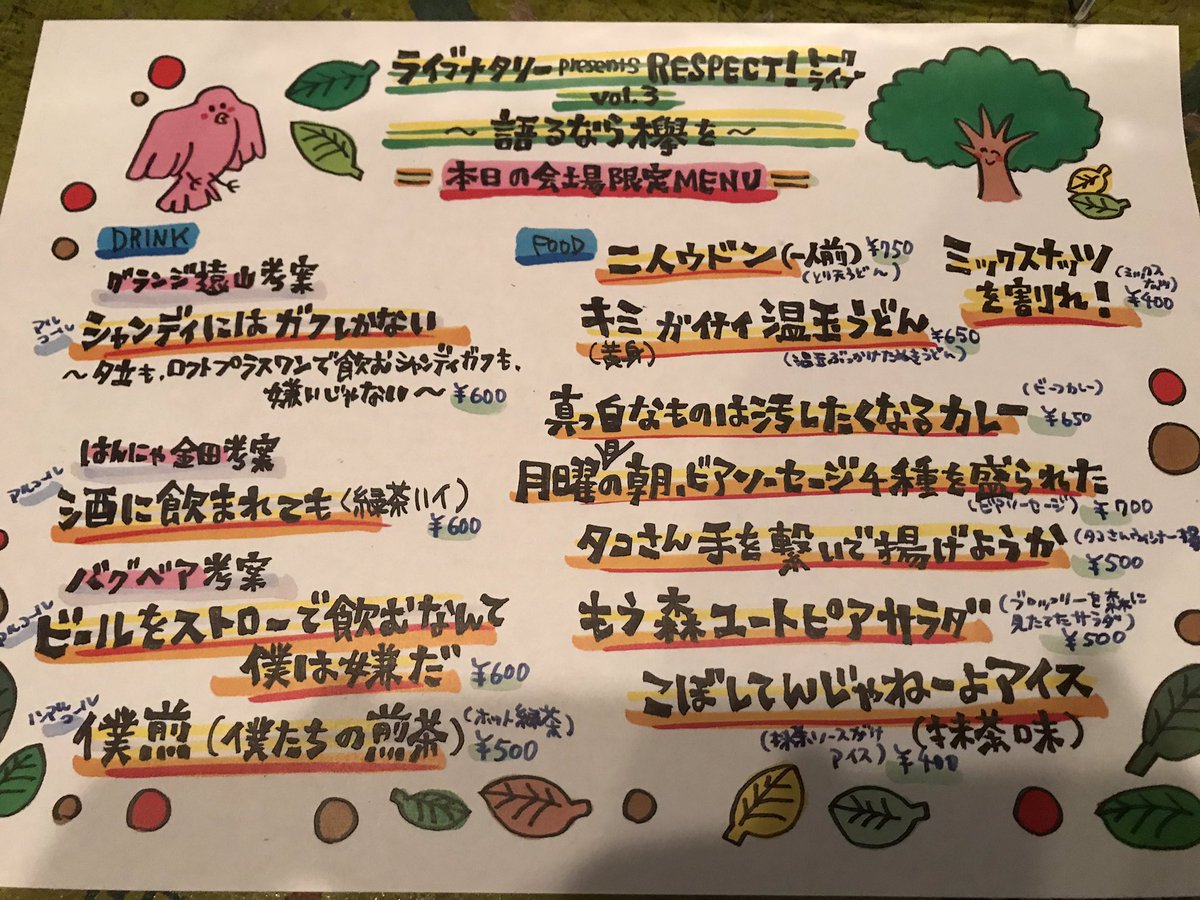 ライブナタリー presents RESPECT! トークライブ
vol.3
～語るなら欅を～
＝本日の会場限定MENU＝
DRINK
グランジ遠山考案
アルコール
シャンディにはガフしかない
～夕立も、ロフトプラスワンで飲むシャンディガフも、
嫌いじゃない～ ¥600
はんにゃ金田考案
アルコール
酒に飲まれても(緑茶ハイ)
¥600
バグベア考案
アルコール
ビールをストローで飲むなんて
僕は嫌だ ¥600
ノンアルコール
僕煎(僕たちの煎茶)(ホット緑茶)
¥500
FOOD
二人ウドン(一人前) ¥750
(とり天うどん)
ミックスナッツ
を割れ!
(ミックスナッツ)
¥400
キミガイナイ温玉うどん ¥650
(黄身)
(温玉ぶっかけたぬきうどん)
真っ白なものは汚したくなるカレー
(ビーフカレー)
¥650
月曜日の朝、ビアソーセージ4種を盛られた
(ビアソーセージ) ¥700
タコさん手を繋いで揚げようか
(タコさんウィンナー揚
¥500
もう森ユートピアサラダ
(ブロッコリーを森に
見たてたサラダ)
¥500
こぼしてんじゃねーよアイス
(抹茶味)
(抹茶ソースがけ
アイス) ¥400